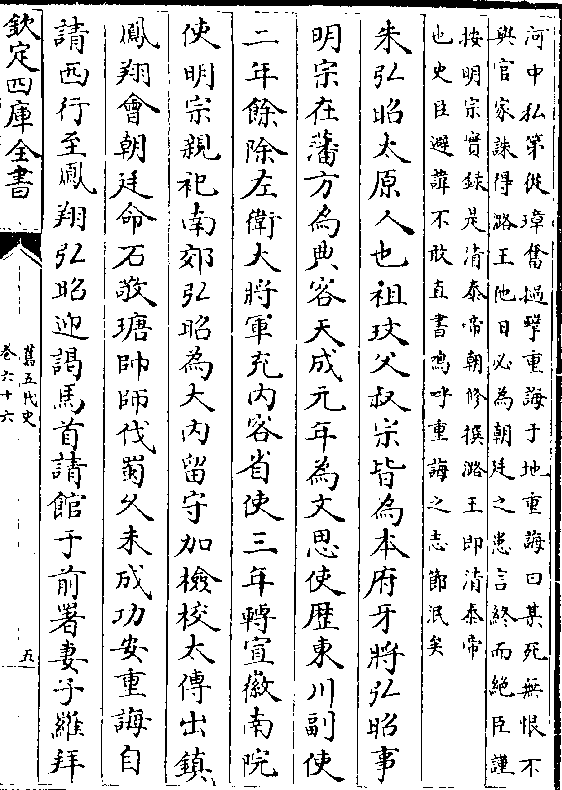 河中私第從璋奮撾擊重誨于地重誨曰某死無恨不
與官家誅得潞王他日必為朝廷之患言終而絶臣謹
按明宗實録是清泰帝朝修撰潞王即清泰帝
也史臣避諱不敢直書嗚呼重誨之志節泯矣
朱弘昭太原人也祖玟父叔宗皆為本府牙將弘昭事
明宗在藩方為典客天成元年為文思使歴東川副使
二年餘除左衛大將軍充内客省使三年轉宣徽南院
使明宗親祀南郊弘昭為大内留守加檢校太傅出鎮
鳳翔會朝廷命石敬瑭帥師伐蜀久未成功安重誨自
請西行至鳳翔弘昭迎謁馬首請館于前署妻子羅拜
欽定四庫全書
舊五代史
卷六十六
五